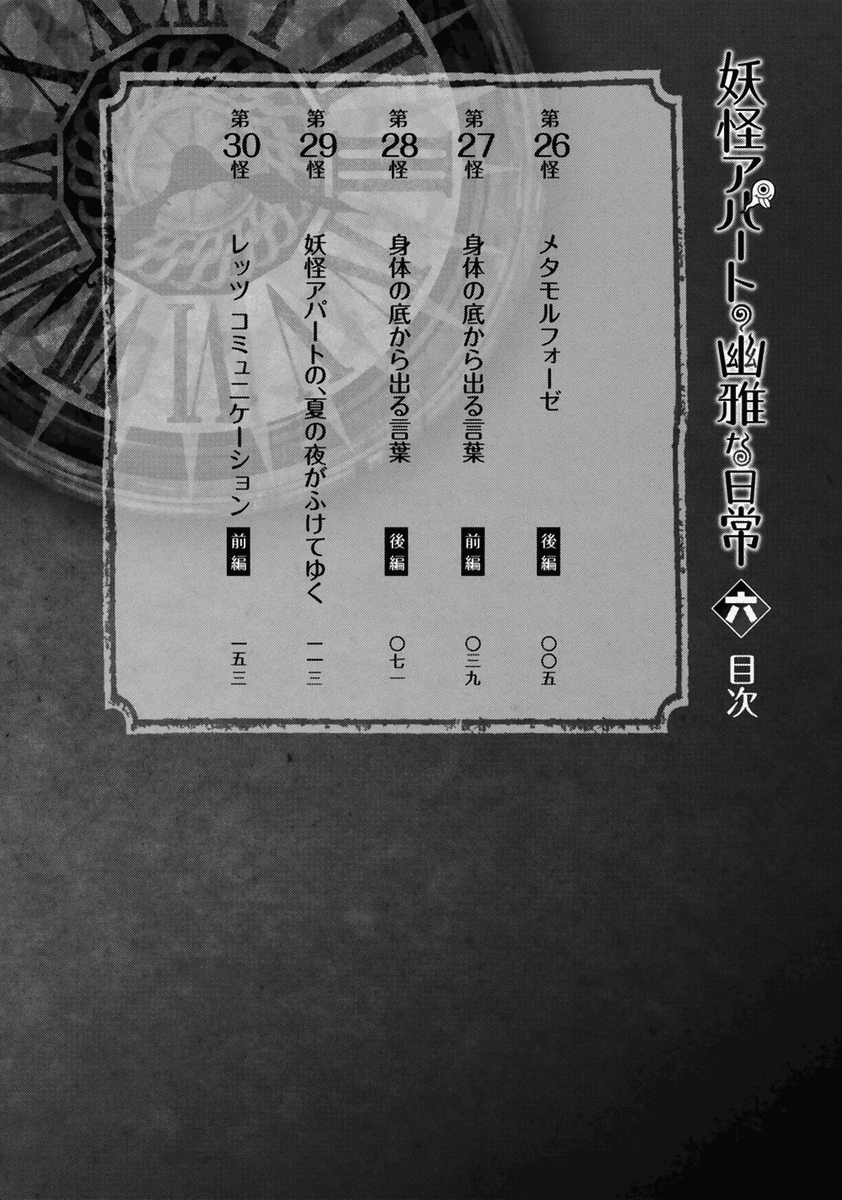 妖怪アパートの幽雅な日常 六 目次
第26怪 メタモルフォーゼ 後編 〇〇五
第27怪 身体の底から出る言葉 前編 〇三九
第28怪 身体の底から出る言葉 後編 〇七一
第29怪 妖怪アパートの、夏の夜がふけてゆく 一一三
第30怪 レッツ コミュニケーション 前編 一五三